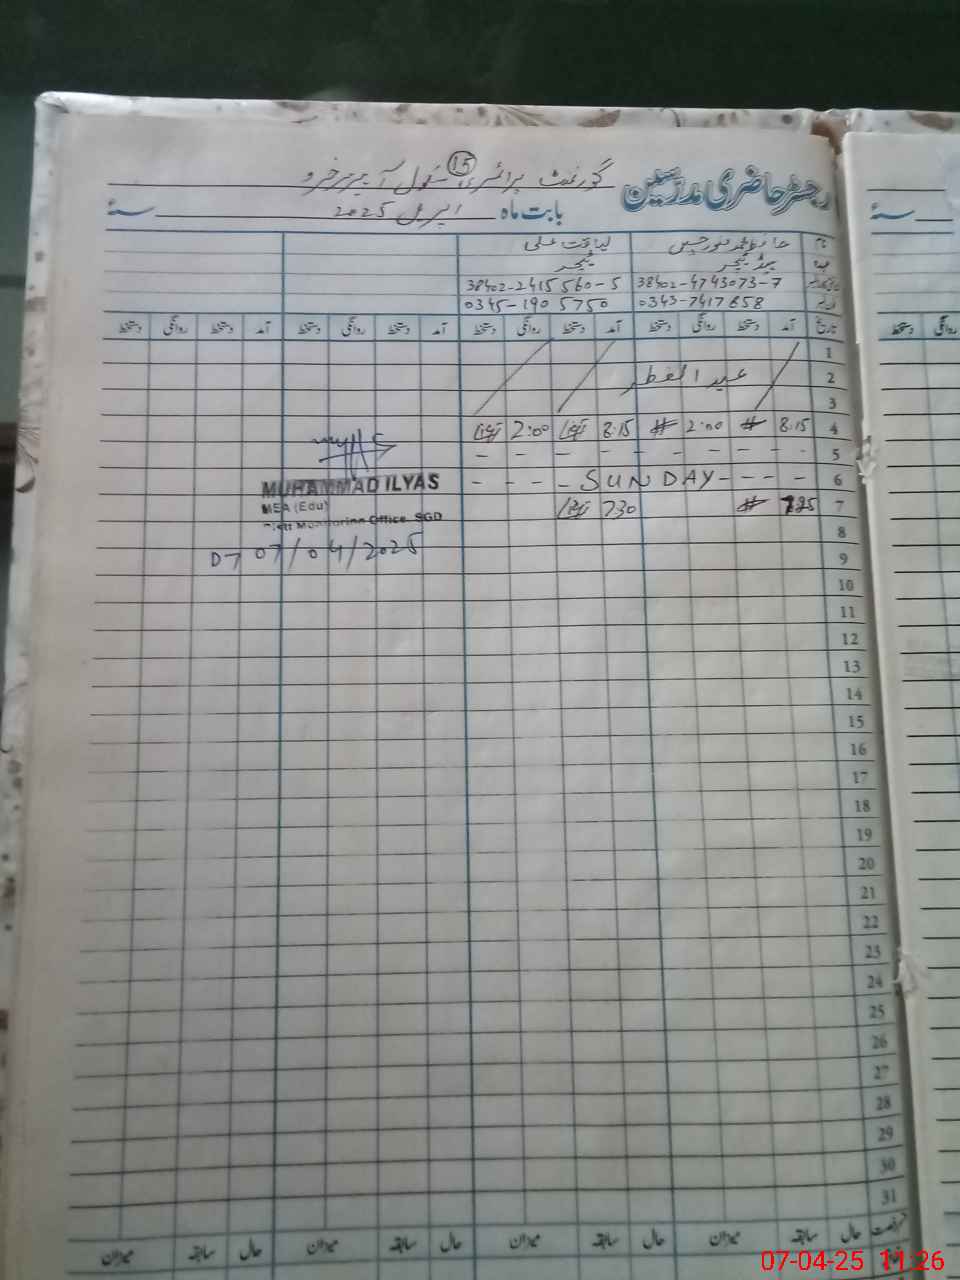 رجسٹر حاضری مدرسین گورنمنٹ پرائمری سکول 15
بابت ماہ اپریل 2025 سنہ
نام حافظ محمد منور حسین لیاقت علی
عہدہ ہیڈ ٹیچر ٹیچر
38402-4743073-7 38402-2415560-5
0343-7417658 0345-1905750
تاریخ آمد دستخط روانگی دستخط آمد دستخط روانگی دستخط آمد دستخط روانگی دستخط آمد دستخط روانگی دستخط
1
2 عید الفطر
3
4 8:15 2:00 8:15 2:00
5 - - - - - - - -
6 - - - SUNDAY - - - -
7 7:25 730
MUHAMMAD ILYAS
MEA (Edu)
Monitoring Office SGD
DT 07/04/2025
8
9
10
11
12
13
14
15
16
17
18
19
20
21
22
23
24
25
26
27
28
29
30
31
رخصت حال سابقہ میزان حال سابقہ میزان حال سابقہ میزان حال سابقہ میزان
سنہ
روانگی دستخط
07-04-25 11:26